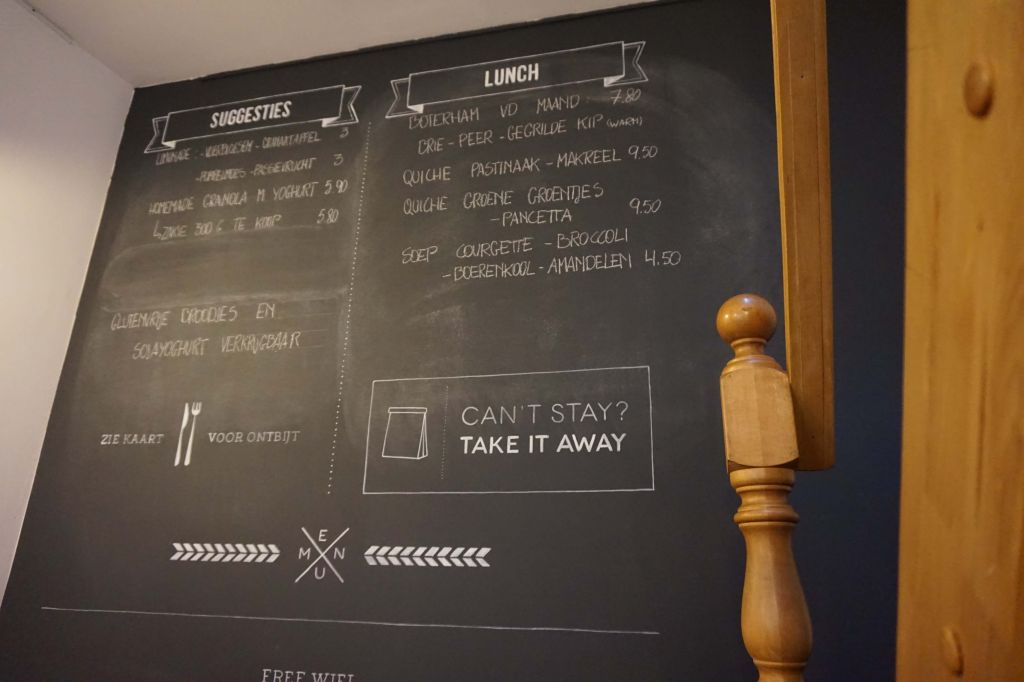 SUGGESTIES
LIMONADE: -VLIERBLOESEM - GRANAATAPPEL 3
-POMPELMOES - PASSIEVRUCHT 3
HOMEMADE GRANOLA M YOGHURT 5.90
↳ZAKJE 300 G TE KOOP 5.80
GLUTENVRIJE BROODJES EN
SOJAYOGHURT VERKRIJGBAAR
ZIE KAART VOOR ONTBIJT
LUNCH
BOTERHAM VD MAAND : 7.80
BRIE - PEER - GEGRILDE KIP (WARM)
QUICHE PASTINAAK - MAKREEL 9.50
QUICHE GROENE GROENTJES
-PANCETTA 9.50
SOEP COURGETTE - BROCCOLI
-BOERENKOOL - AMANDELEN 4.50
CAN'T STAY?
TAKE IT AWAY
MENU
FREE WIFI